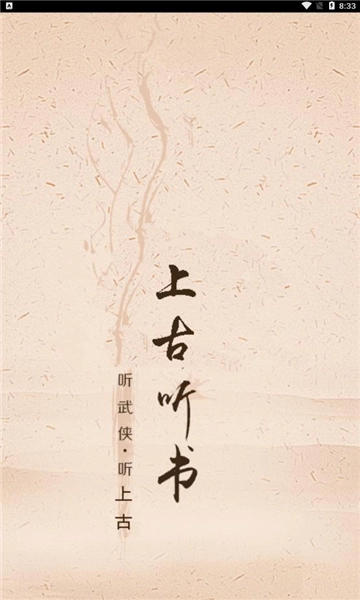 8:33
上古听书
听武侠·听上古